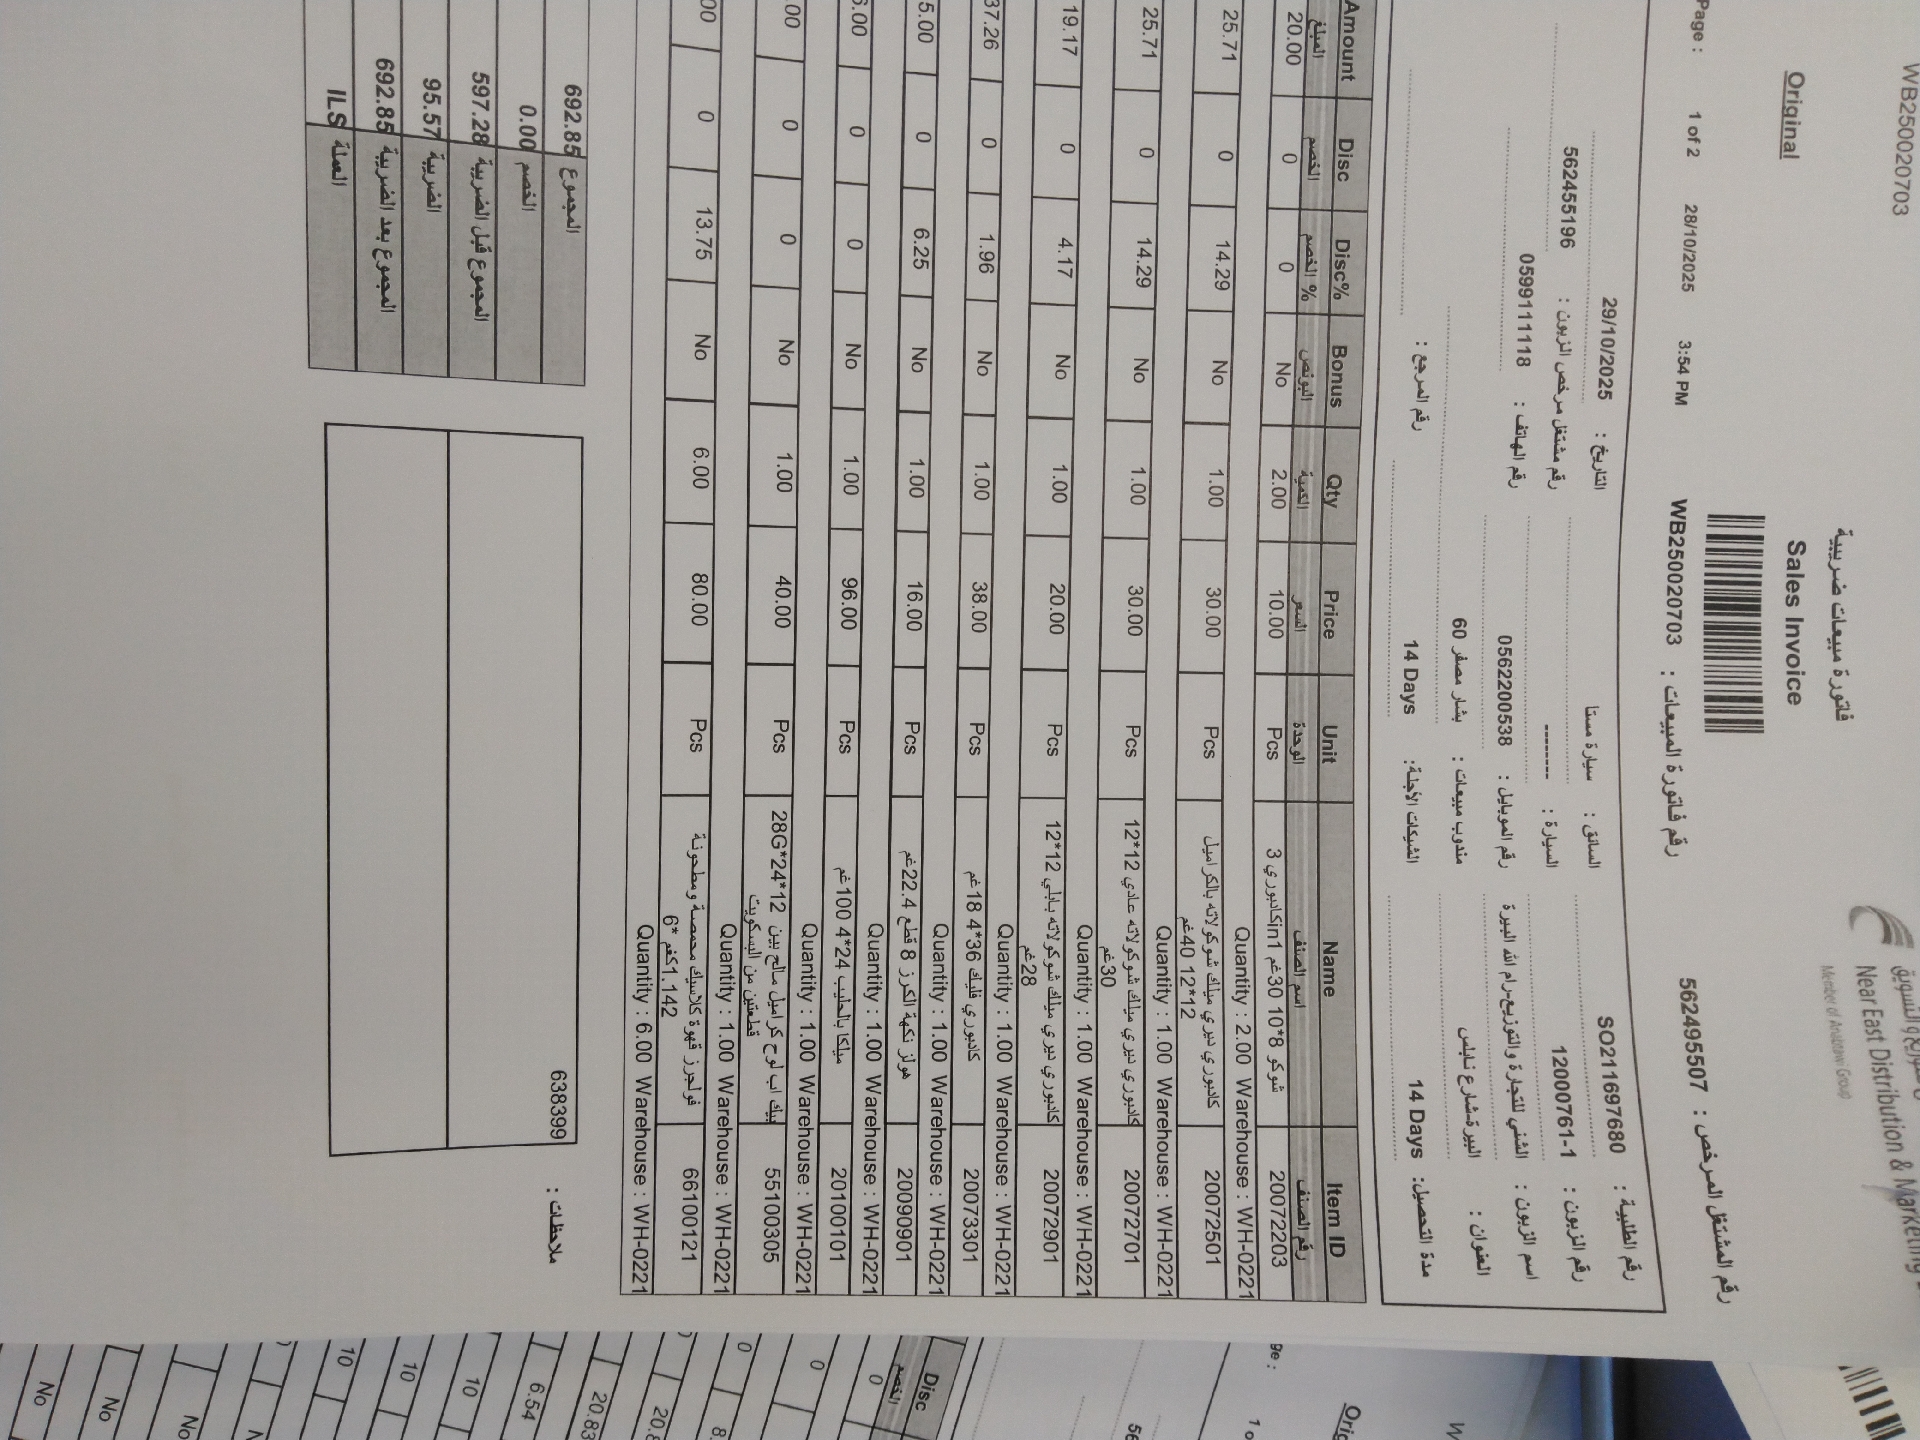 WB250020703
Near East Distribution & Marketing
Member of Anabtawi Group
فاتورة مبيعات ضريبية
Original
Sales Invoice
رقم المشتغل المرخص : 562495507
رقم فاتورة المبيعات : WB250020703
Page : 1 of 2 28/10/2025 3:54 PM
رقم الطلبية : SO211697680
السائق : سيارة مستا
التاريخ : 29/10/2025
رقم الزبون : 1200761-1
السيارة : --------
رقم مشتغل مرخص الزبون : 562455196
اسم الزبون : الشني للتجارة والتوزيع-رام الله البيرة
رقم الموبايل : 0562200538
رقم الهاتف : 0599111118
العنوان : البيرة-شارع نابلس
مندوب مبيعات : بشار مصفر 60
مدة التحصيل: 14 Days
الشيكات الآجلة: 14 Days
رقم المرجع :
Amount Disc Disc% Bonus Qty Price Unit Name Item ID
المبلغ الخصم % الخصم البونص الكمية السعر الوحدة اسم الصنف رقم الصنف
20.00 0 0 No 2.00 10.00 Pcs كادبوري 3in1 شوكو 8*10 30غم 20072203
Quantity : 2.00 Warehouse : WH-0221
25.71 0 14.29 No 1.00 30.00 Pcs كادبوري ديري ميلك شوكولاته بالكراميل 12*12 40غم 20072501
Quantity : 1.00 Warehouse : WH-0221
25.71 0 14.29 No 1.00 30.00 Pcs كادبوري ديري ميلك شوكولاته عادي 12*12 30غم 20072701
Quantity : 1.00 Warehouse : WH-0221
19.17 0 4.17 No 1.00 20.00 Pcs كادبوري ديري ميلك شوكولاته بابلي 12*12 28غم 20072901
Quantity : 1.00 Warehouse : WH-0221
37.26 0 1.96 No 1.00 38.00 Pcs كادبوري فليك 36*4 18غم 20073301
Quantity : 1.00 Warehouse : WH-0221
5.00 0 6.25 No 1.00 16.00 Pcs هولز نكهة الكرز 8 قطع 22.4غم 20090901
Quantity : 1.00 Warehouse : WH-0221
6.00 0 0 No 1.00 96.00 Pcs ميلكا بالحليب 24*4 100غم 20100101
Quantity : 1.00 Warehouse : WH-0221
.00 0 0 No 1.00 40.00 Pcs بيك اب لوح كراميل مالح بين قطعتين من البسكويت 28G*24*12 55100305
Quantity : 1.00 Warehouse : WH-0221
00 0 13.75 No 6.00 80.00 Pcs فولجرز قهوة كلاسيك محمصة ومطحونة 1.142كغم *6 66100121
Quantity : 6.00 Warehouse : WH-0221
692.85 المجموع
0.00 الخصم
597.28 المجموع قبل الضريبة
95.57 الضريبة
692.85 المجموع بعد الضريبة
ILS العملة
ملاحظات :
638399
Disc
الخصم
0
0
0
6.54
20.83
10
10
10
No
No
No